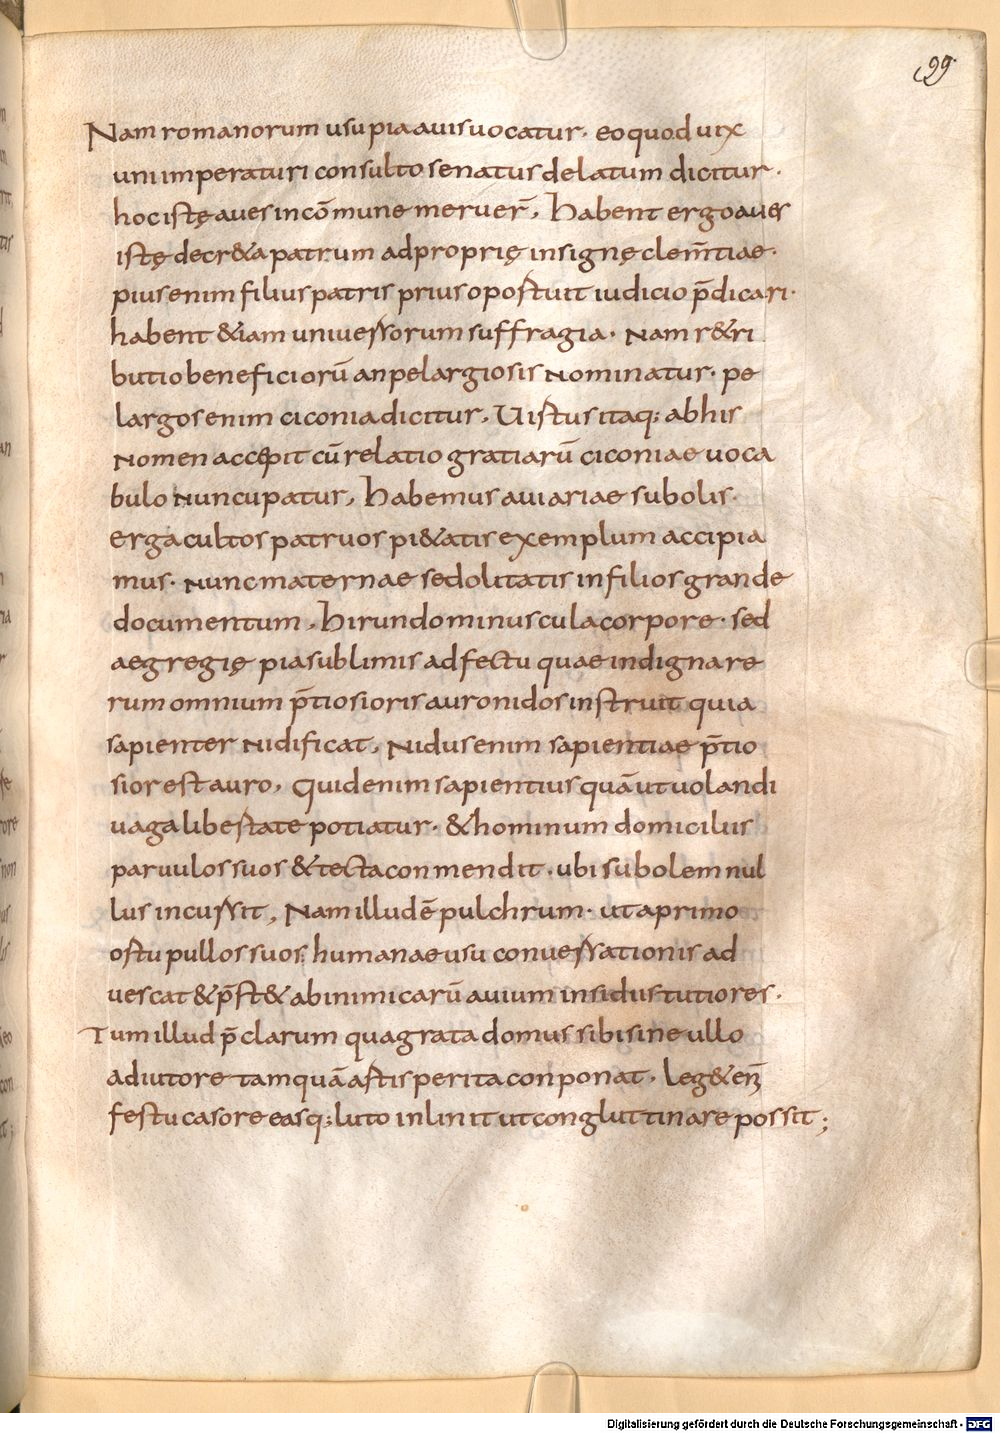 99
Nam romanorum usu pia auis uocatur· eo quod uix
uni imperaturi consulto senatus delatum dicitur·
hoc istę aues in cōmune meruer̄, habent ergo aues
istę decr&a patrum ad proprię insignę clem̄tiae·
pius enim filius patris prius oportuit iudicio p̄dicari·
habent &iam uniuersorum suffragia· Nam r&ri
butio beneficiorū anpelargiosis nominatur· pe
largos enim ciconia dicitur, Uirtus itaq; ab his
nomen accepit cū relatio gratiarū ciconiae uoca
bulo nuncupatur, habemus auiariae subolis·
erga cultos patruos pi&atis exemplum accipia
mus· nunc maternae sedolitatis in filios grande
documentum, hirundo minuscula corpore· sed
aegregię pia sublimis adfectu quae indignare
rum omnium p̄tiosioris auro nidos instruit quia
sapienter nidificat, Nidus enim sapientiae p̄tio
sior est auro, quid enim sapientius quā ut uolandi
uaga libertate potiatur· & hominum domiciliis
paruulos suos & tecta conmendit· ubi subolem nul
lus incursit, Nam illud ē pulchrum· ut a primo
ortu pullos suos; humanae usu conuersationis ad
uescat & p̄st& ab inimicarū auium insidiis tutiores·
Tum illud p̄clarum qua grata domus sibi sine ullo
adiutore tamquā artis perita conponat· leg& en̄
festucas ore easq; luto inlinit ut congluttinare possit;
Digitalisierung gefördert durch die Deutsche Forschungsgemeinschaft - DFG